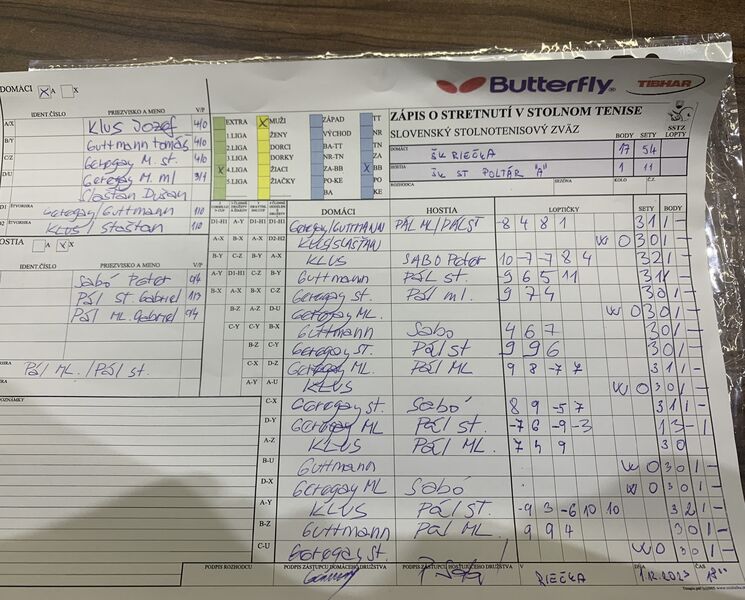 Butterfly
TIBHAR
DOMÁCI X A X
ZÁPIS O STRETNUTÍ V STOLNOM TENISE
SLOVENSKÝ STOLNOTENISOVÝ ZVÄZ
IDENT.ČÍSLO PRIEZVISKO A MENO V/P
A/X Klus Jozef 4/0
B/Y Guttmann tomáš 4/0
C/Z Geregay M. st. 4/0
D/U Geregay M. ml 3/1
Slastan Dušan
ŠTVORHRA Geregay/Guttmann 1/0
D2 ŠTVORHRA Klus/Slastan 1/0
HOSTIA A X X
IDENT.ČÍSLO PRIEZVISKO A MENO V/P
Sabó Peter 0/4
Pál St. Gabriel 1/3
Pál ML. Gabriel 0/4
Pál ML. / Pál st.
POZNÁMKY
EXTRA X MUŽI ZÁPAD TT
1.LIGA ŽENY VÝCHOD NR
2.LIGA DORCI BA-TT TN
3.LIGA DORKY NR-TN ZA
X 4.LIGA ŽIACI ZA-BB X BB
5.LIGA ŽIAČKY PO-KE PO
BA KE
DOMÁCI ŠK RIEČKA BODY 17 SETY 54 SSTZ LOPTY
HOSTIA ŠK ST POLTÁR "A" 1 11
ROZHODCA SEZÓNA KOLO Č.Z.
DOMÁCI HOSTIA LOPTIČKY SETY BODY
D1-H1 A-Y D1-H1 D1-H1 Geregay/GUTTMANN PÁL ML/PÁL ST -8 4 8 1 3 1 1 -
A-X B-X A-X D2-H2 KLUS/SLASTAN W O 3 0 1 -
B-Y C-Z B-Y A-X KLUS SABO Peter 10 -7 -7 8 4 3 2 1
A-Y D1-H1 C-Z B-Y Guttmann PÁL st. 9 6 5 11 3 1 1 -
B-X A-X B-X C-Z Geregay st. Pál ml. 9 7 4 3 0 1 -
B-Z A-Z D-U Geregay ML. W O 3 0 1 -
C-Y C-Y B-X Guttmann Sabo 4 6 7 3 0 1 -
B-Z C-Y Geregay st. Pál st 9 9 6 3 0 1 -
C-X D-Z Geregay ML. Pál ML 9 8 -7 7 3 1 1 -
A-Y A-U KLUS W O 3 0 1 -
C-X Geregay st. Sabó 8 9 -5 7 3 1 1 -
D-Y Geregay ML Pál st. -7 6 -9 -3 1 3 - 1
A-Z KLUS Pál ML. 7 4 9 3 0
B-U Guttmann W O 3 0 1 -
D-X Geregay ML Sabó W O 3 0 1 -
A-Y KLUS Pál st. -9 3 -6 10 10 3 2 1 -
B-Z Guttmann Pál ML. 9 9 4 3 0 1 -
C-U Geregay st. W O 3 0 1 -
PODPIS ROZHODCU PODPIS ZÁSTUPCU DOMÁCEHO DRUŽSTVA PODPIS ZÁSTUPCU HOSŤUJÚCEHO DRUŽSTVA V RIEČKA DŇA 1.12.2023 ČAS